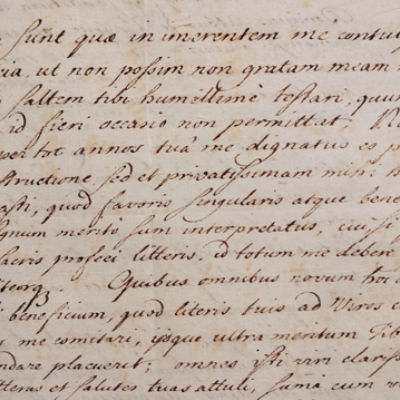 sunt quæ in imerentem me contul
ut non possim non gratam meam
saltem tibi humillimè testari, quum
id fieri occasio non permittat;
per tot annos tuâ me dignatus es p
structione sed et privatissimam mihi h
asti, quod favoris singularis atque bene
ignum merito sum interpretatus, cui si
sacris profeci litteris, id totum me debere
Quibus omnibus novum hoc
beneficium, quod literis tuis ad Viros c
me comitari, iisque ultra meritum Tib
ndare placuerit; omnes isti viri claris
tteras et salutes tuas attuli, sumâ cum